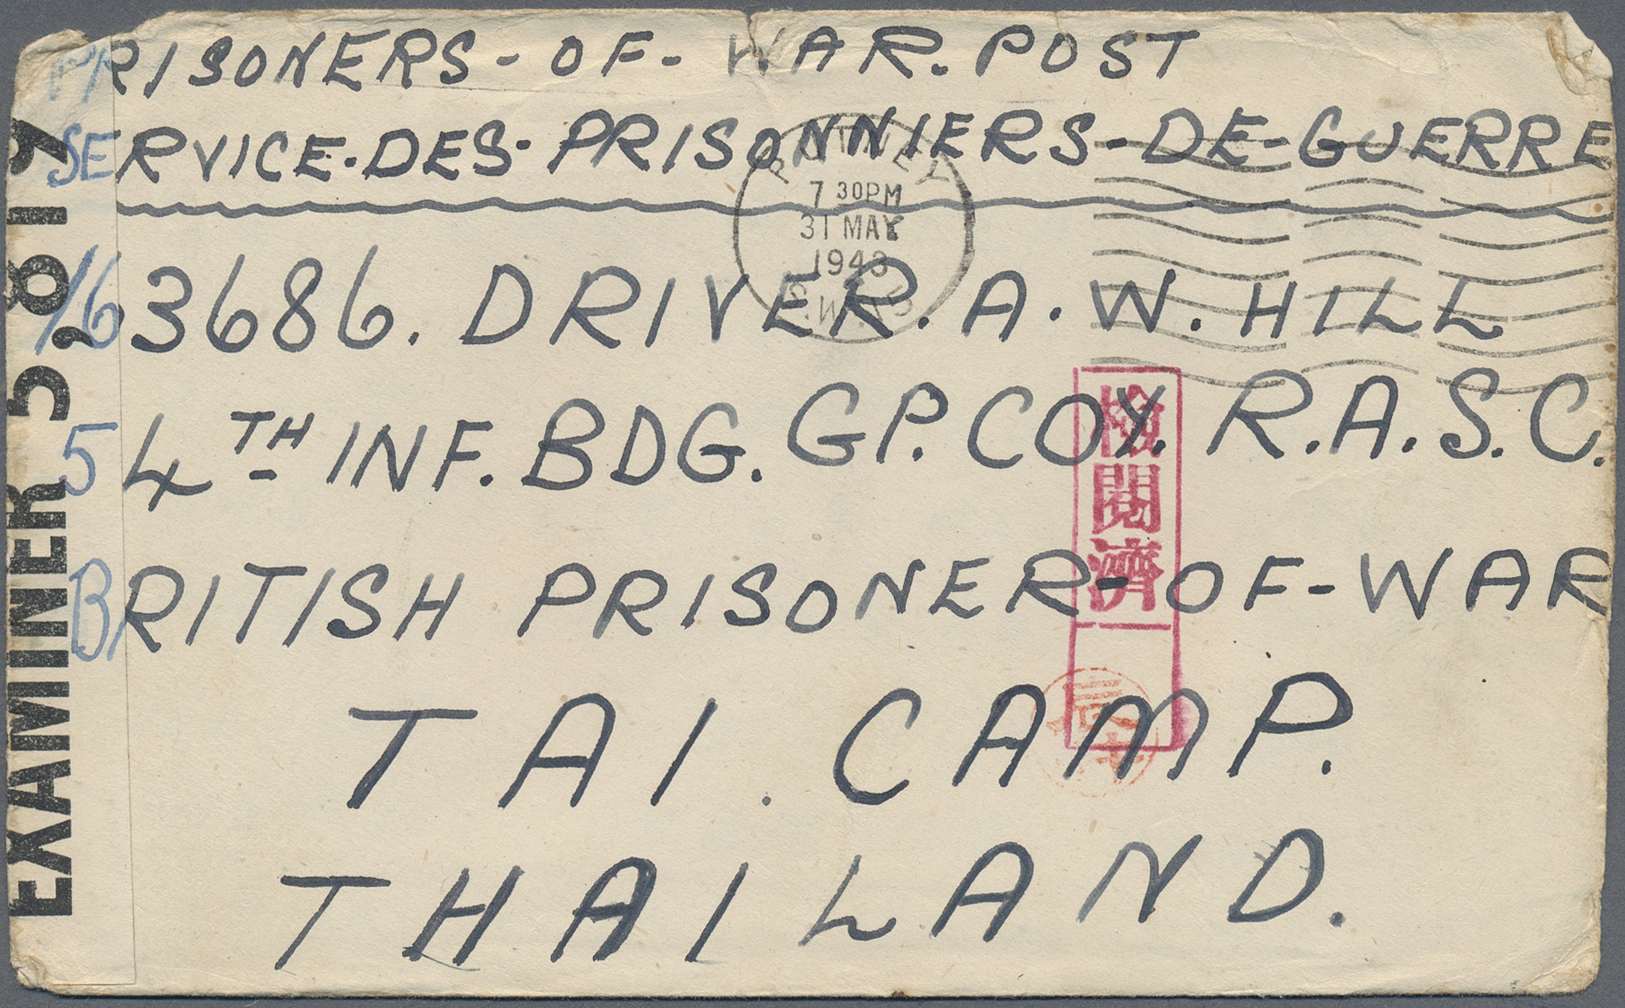 PRISONERS-OF-WAR. POST
SERVICE-DES-PRISONNIERS-DE-GUERRE
PUTNEY
7 30PM
31 MAY
1943
S.W.15
/63686. DRIVER. A.W. HILL
54TH INF. BDG. GP. COY. R.A.S.C.
BRITISH PRISONER-OF-WAR
TAI. CAMP.
THAILAND.
EXAMINER 5819
検閲濟